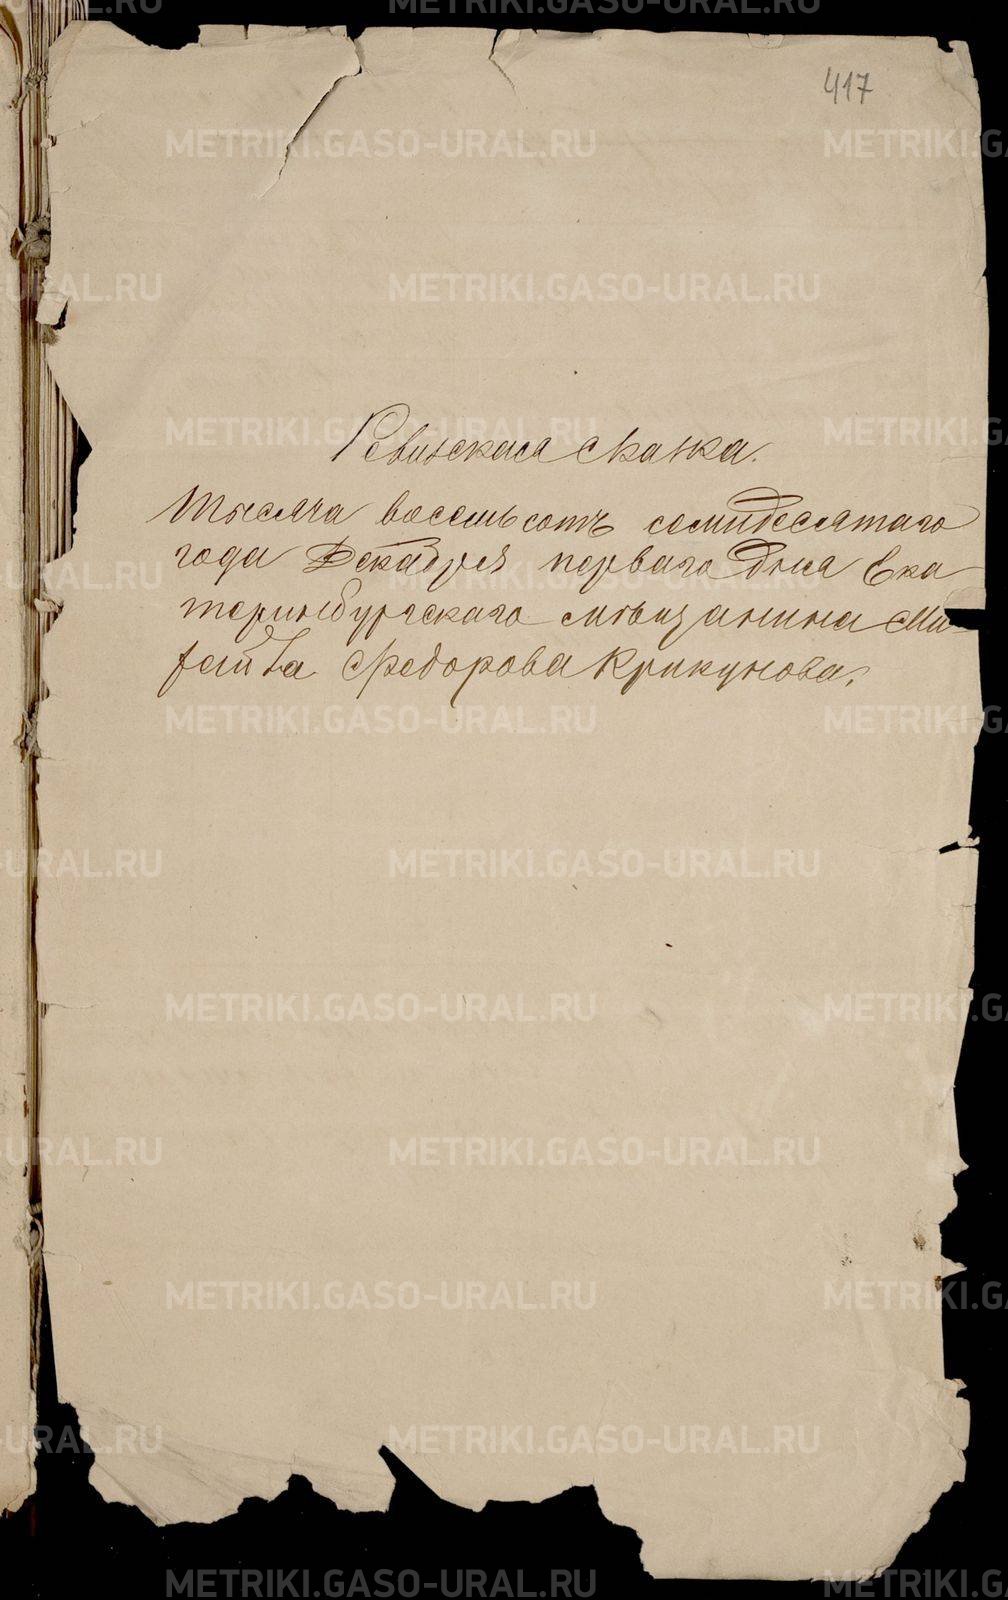 417
Ревизская сказка.
Тысяча восемьсотъ семидесятаго
года Декабря перваго дня Ека-
теринбургскаго мѣщанина Ми-
Федорова Крикунова.
METRIKI.GASO-URAL.RU